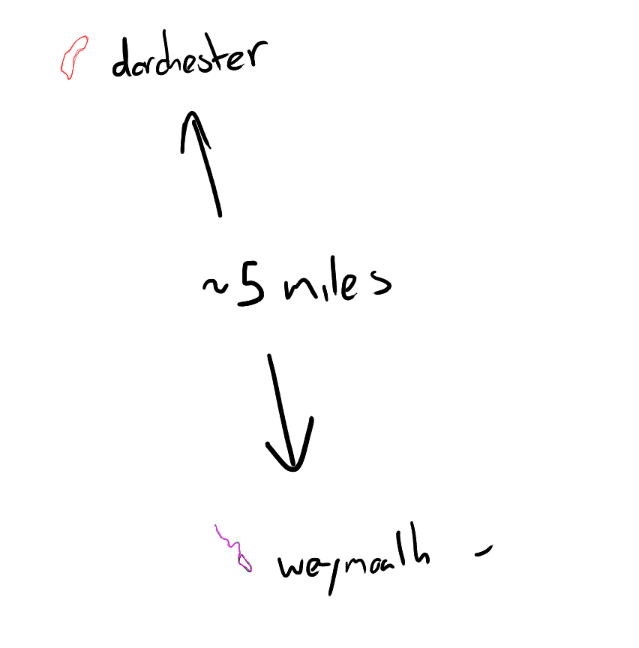 dorchester
~5 miles
weymouth -